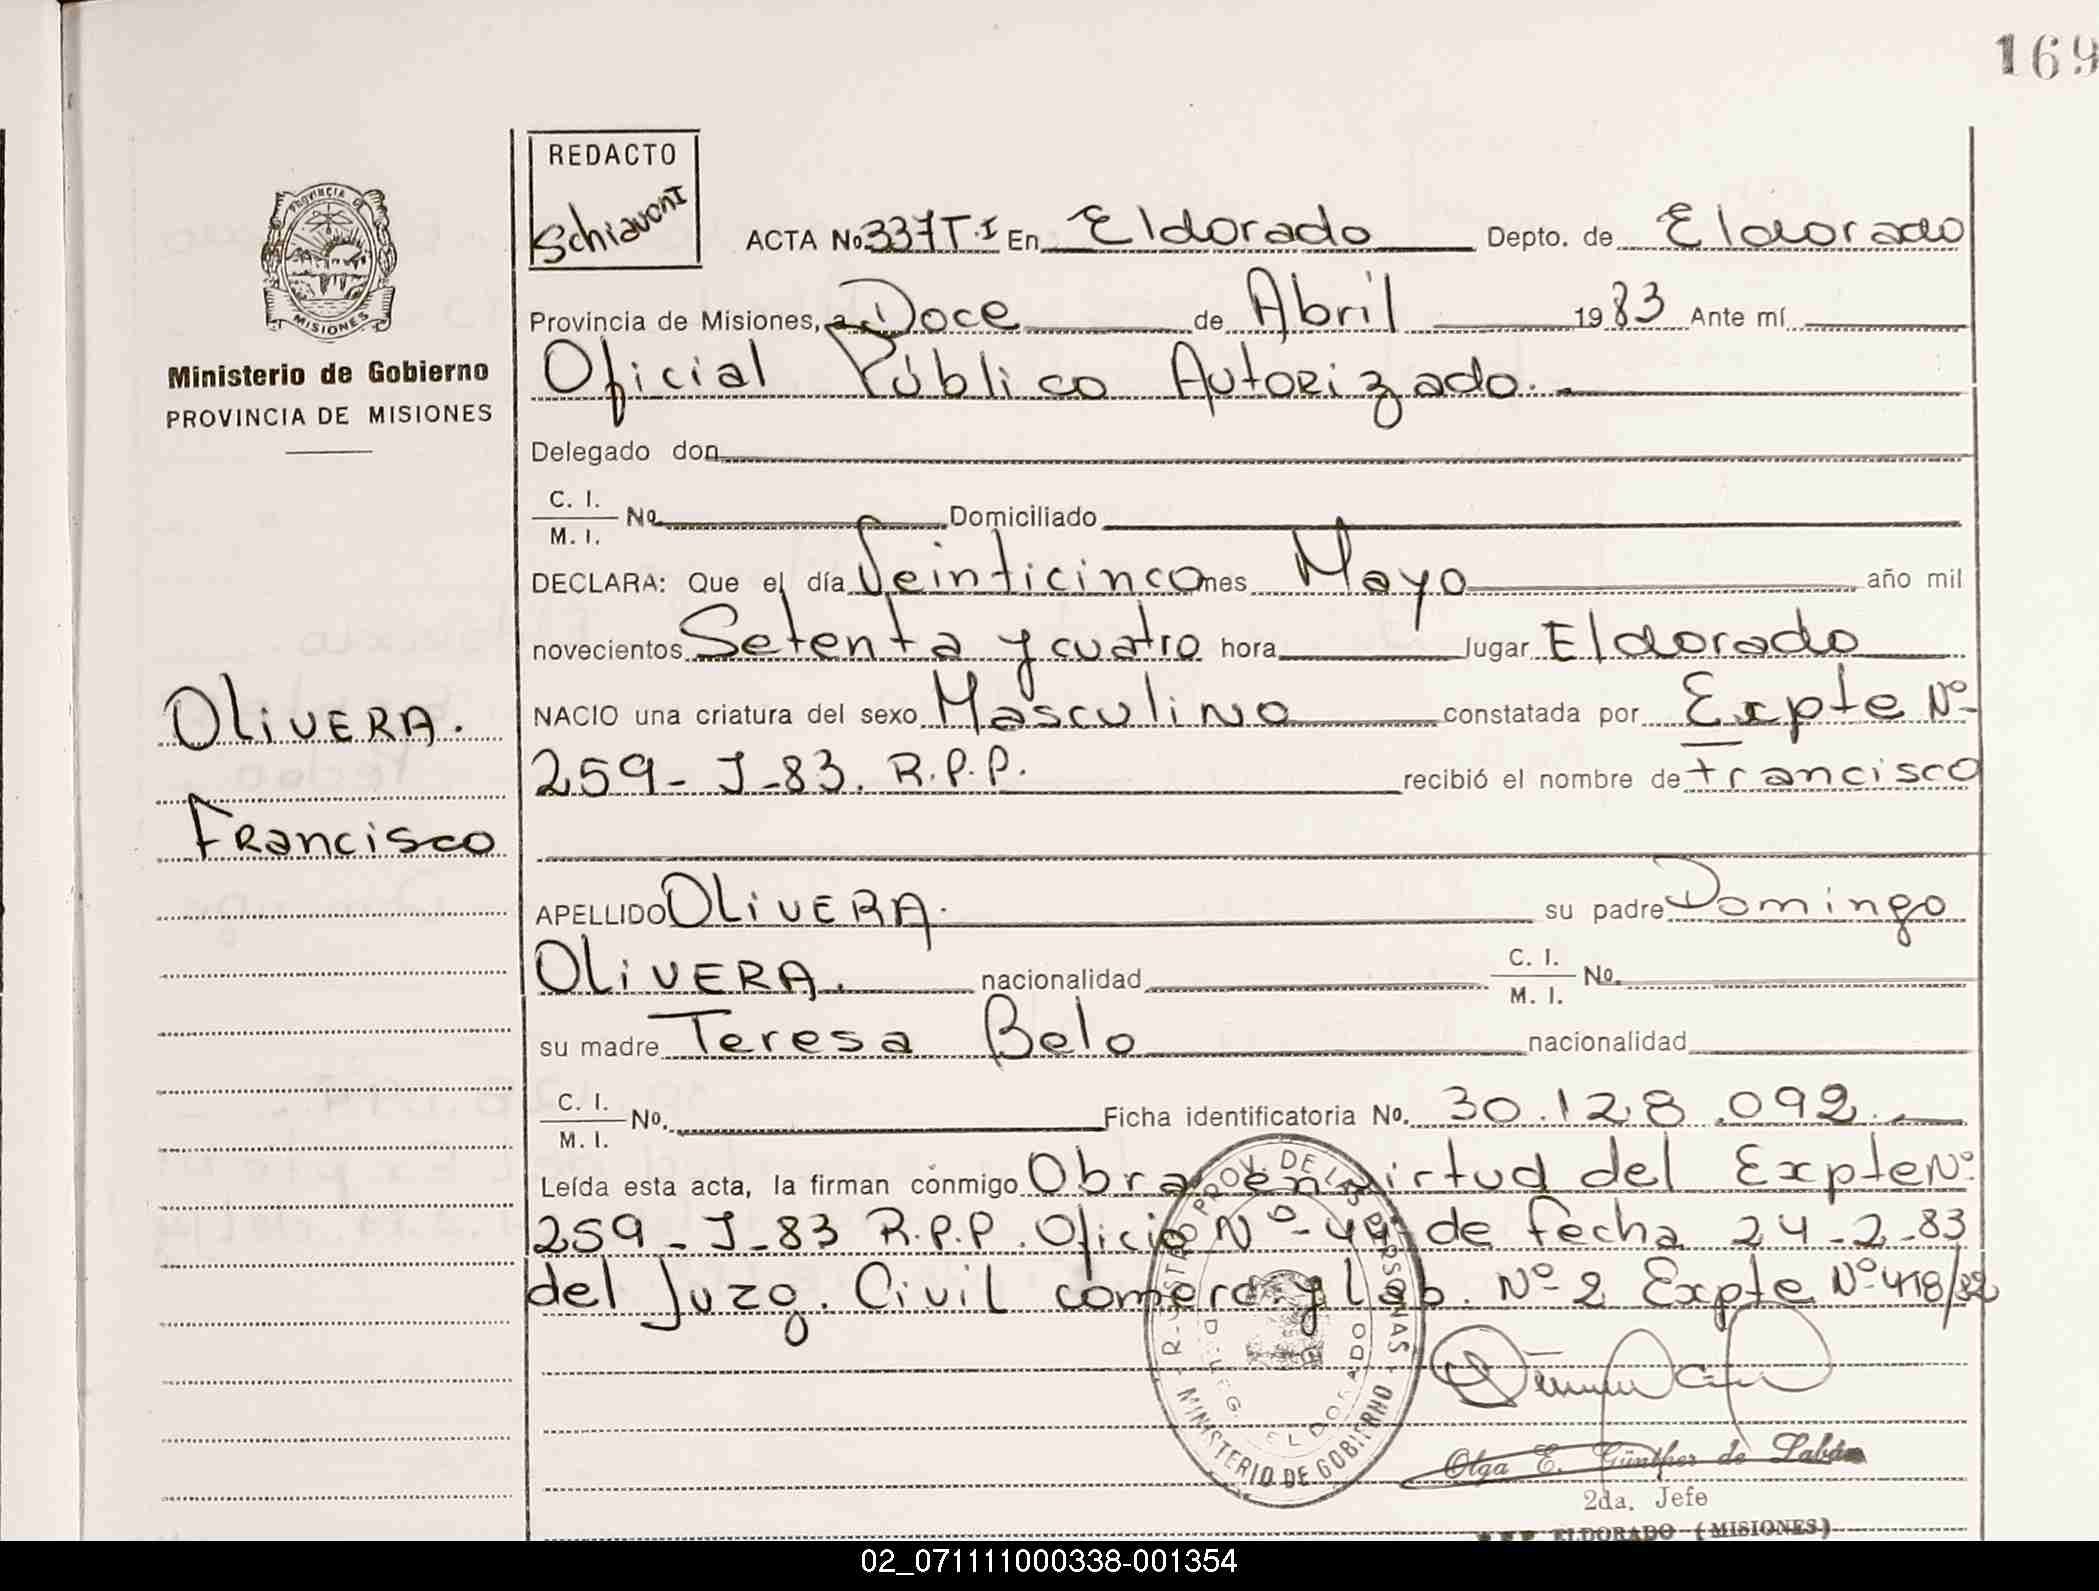 169
REDACTO
Schiavoni
PROVINCIA DE
MISIONES
Ministerio de Gobierno
PROVINCIA DE MISIONES
OLIVERA.
Francisco
ACTA No 337 T.I En Eldorado Depto. de Eldorado
Provincia de Misiones, a Doce de Abril 1983 Ante mí
Oficial Público Autorizado.
Delegado don
C. I.
M. I. No Domiciliado
DECLARA: Que el día Veinticinco mes Mayo año mil
novecientos Setenta y cuatro hora lugar Eldorado
NACIO una criatura del sexo Masculino constatada por Expte Nº
259-J-83. R.P.P. recibió el nombre de Francisco
APELLIDO OLIVERA. su padre Domingo
OLIVERA. nacionalidad C. I.
M. I. No.
su madre Teresa Belo nacionalidad
C. I.
M. I. No. Ficha identificatoria No. 30.128.092.
Leída esta acta, la firman conmigo Obra en virtud del Expte Nº
259-J-83 R.P.P. Oficio Nº de fecha 24-2-83
del Juzg. Civil comerc. y lab. Nº 2 Expte Nº 418/82
PROV. DE LAS PERSONAS
MINISTERIO DE GOBIERNO
ELDORADO
Olga E. Günther de Labán
2da. Jefe
ELDORADO (MISIONES)
02_071111000338-001354